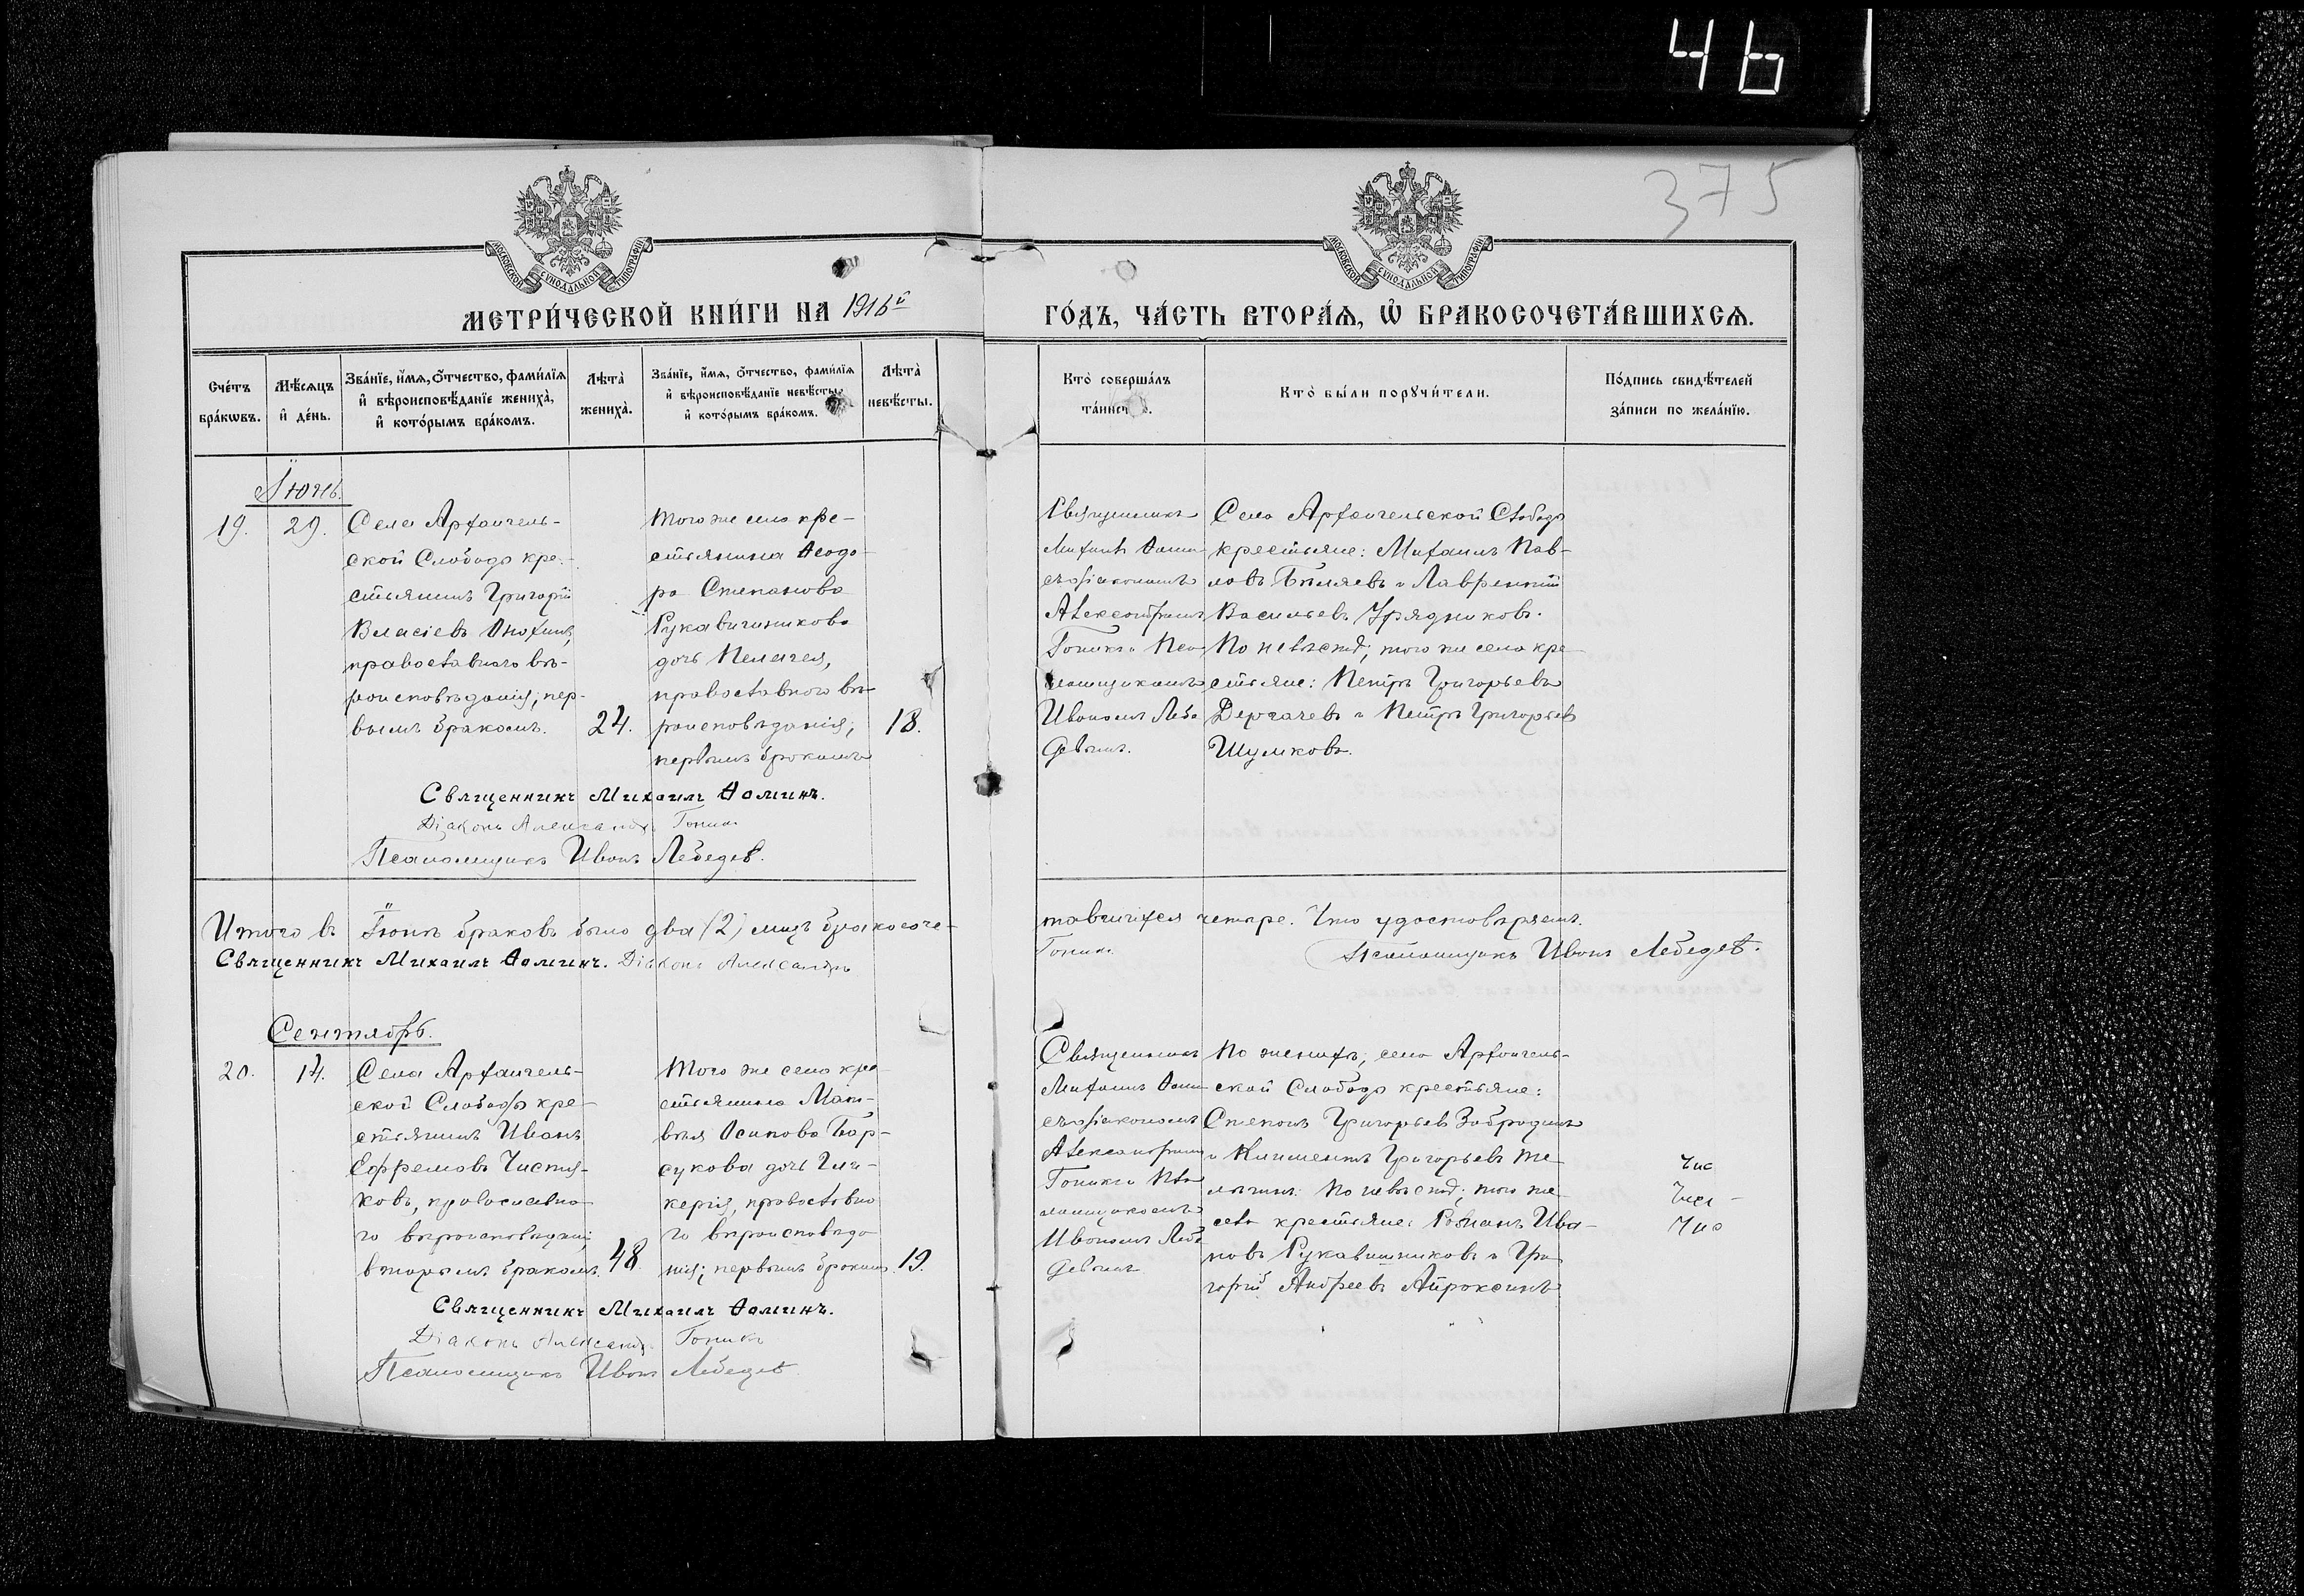 46
375
МОСКОВСКОЙ СѴНОДАЛЬНОЙ ТИПОГРАФІИ
МОСКОВСКОЙ СѴНОДАЛЬНОЙ ТИПОГРАФІИ
МЕТРИ́ЧЕСКОЙ КНИ́ГИ НА 1916й
ГО́ДЪ, ЧА́СТЬ ВТОРА́Ѧ, Ѡ҆ БРАКОСОЧЕТА́ВШИХСѦ.
Сче́тъ бра́кѡвъ.
Мѣ́сѧцъ и҆ де́нь.
Зва́нїе, и҆́мѧ, ѻ҆́тчество, фами́лїѧ
и҆ вѣроисповѣ́данїе жениха̀,
и҆ кото́рымъ бра́комъ.
Лѣта̀ жениха̀.
Зва́нїе, и҆́мѧ, ѻ҆́тчество, фами́лїѧ
и҆ вѣроисповѣ́данїе невѣ́сты,
и҆ кото́рымъ бра́комъ.
Лѣта̀ невѣ́сты.
Кто̀ соверша́лъ
Кто̀ бы́ли порꙋчи́тели.
По́дпись свидѣ́телей
за́писи по жела́нїю.
Іюнь.
19.
29.
Села Архангель-
ской Слободы кре-
стьянинъ Григорій
Власіевъ Анохинъ,
православнаго вѣ-
роисповѣданія, пер-
вымъ бракомъ.
24.
того же села кре-
стьянина Ѳеодо-
ра Степанова
Рукавичникова
дочь Пелагея,
православнаго вѣ-
роисповѣданія,
первымъ бракомъ
18.
Священникъ
Михаилъ Ѳоминъ
съ діакономъ
Александромъ
Иваномъ Лебе
девымъ.
Села Архангельской Слободы
крестьяне: Михаилъ Пав-
ловъ Бѣляевъ и Лаврентій
Васильевъ Урядниковъ.
По невѣстѣ, того же села кре-
стьяне: Петръ Григорьевъ
Дергачевъ и Петръ Григорьевъ
Шумковъ.
Священникъ Михаилъ Ѳоминъ.
Діаконъ Александръ
Псаломщикъ Иванъ Лебедев.
Итого въ Іюнѣ браковъ было два (2) лицъ бракосоче-
тавшихся четыре. Что удостовѣряемъ.
Священникъ Михаилъ Ѳоминъ. Діаконъ Александръ
Псаломщикъ Иванъ Лебедев.
Сентябрь.
20.
14.
Села Архангель-
ской Слободы кре-
стьянинъ Иванъ
Ефремовъ Чистя-
ковъ, православна-
го вѣроисповѣданія,
вторымъ бракомъ.
48
того же села кре-
стьянина Мат-
вѣя Осипова Бар-
сукова дочь Гли-
керія, православна
го вѣроисповѣда
нія; первымъ бракомъ
19.
Священникъ
Михаилъ Ѳомин
съ діакономъ
Александромъ
Иваномъ Лебе
девымъ
По женихѣ, села Архангель-
ской Слободы крестьяне:
Степанъ Григорьевъ Забродинъ
и Климентъ Григорьевъ Те
По невѣстѣ, того же
села крестьяне: Романъ Ива-
новъ Рукавишниковъ и Гри
горій Андреевъ
Священникъ Михаилъ Ѳоминъ.
Діаконъ Александръ
Псаломщикъ Иванъ Лебедев